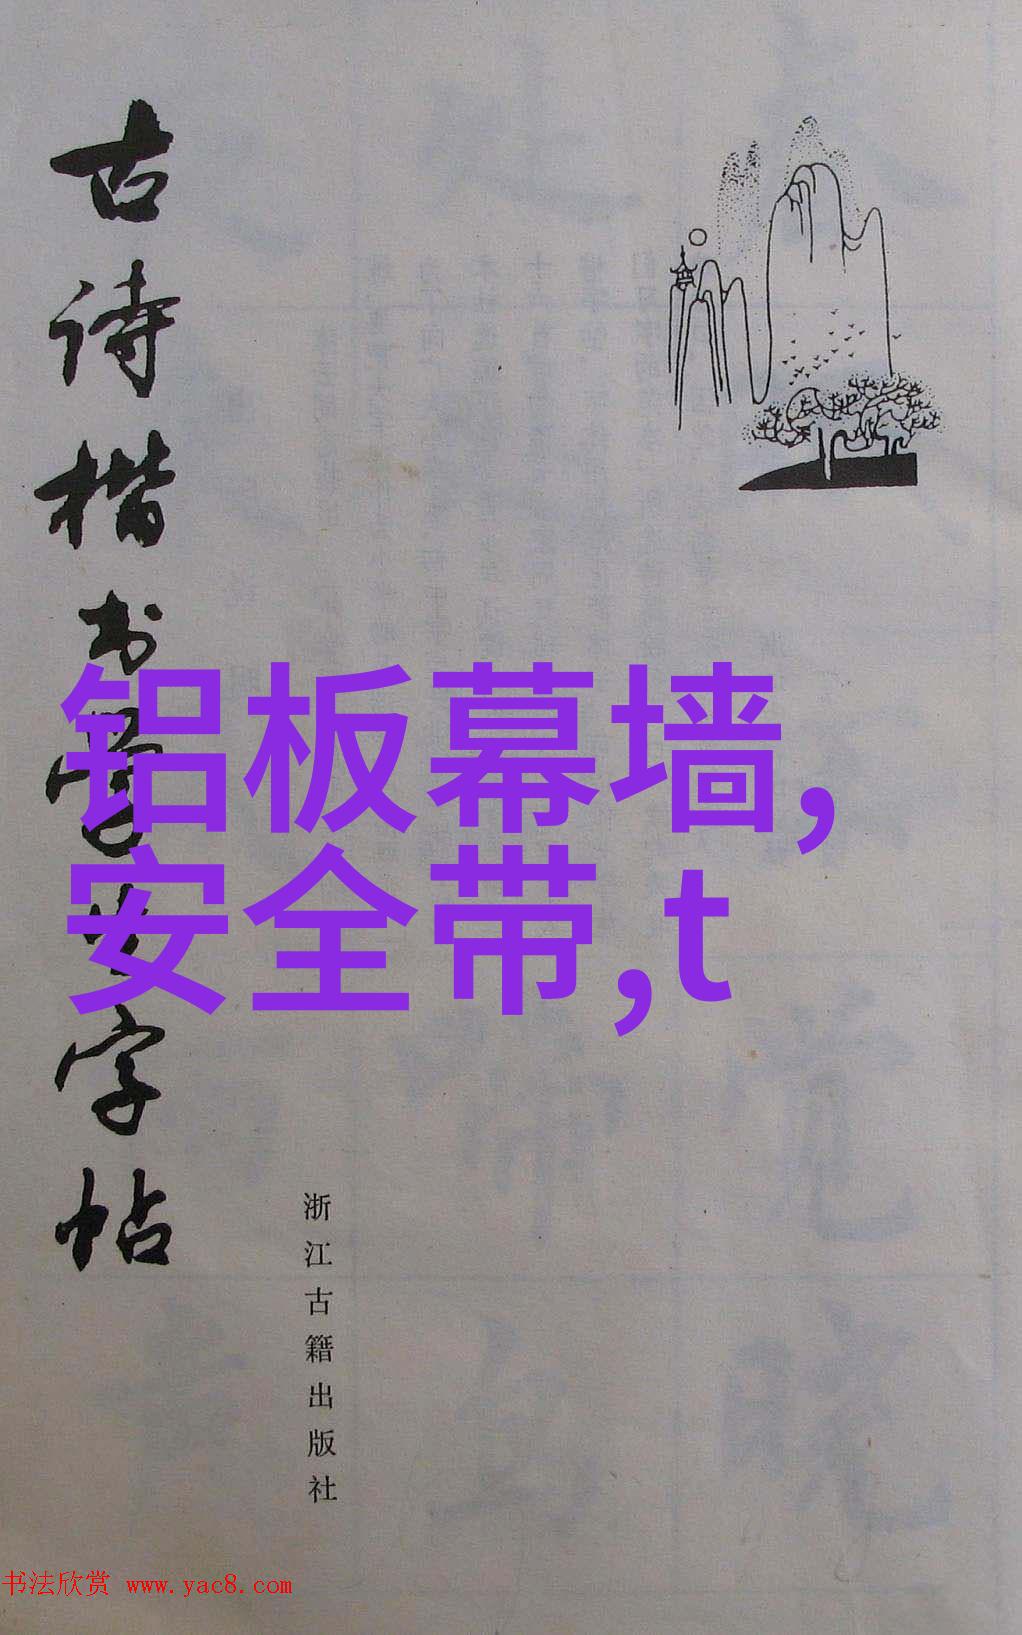 古诗楷书学生字帖
铝板幕墙,
安全带,t
浙江古籍出版社
书法欣赏 www.yac8.com